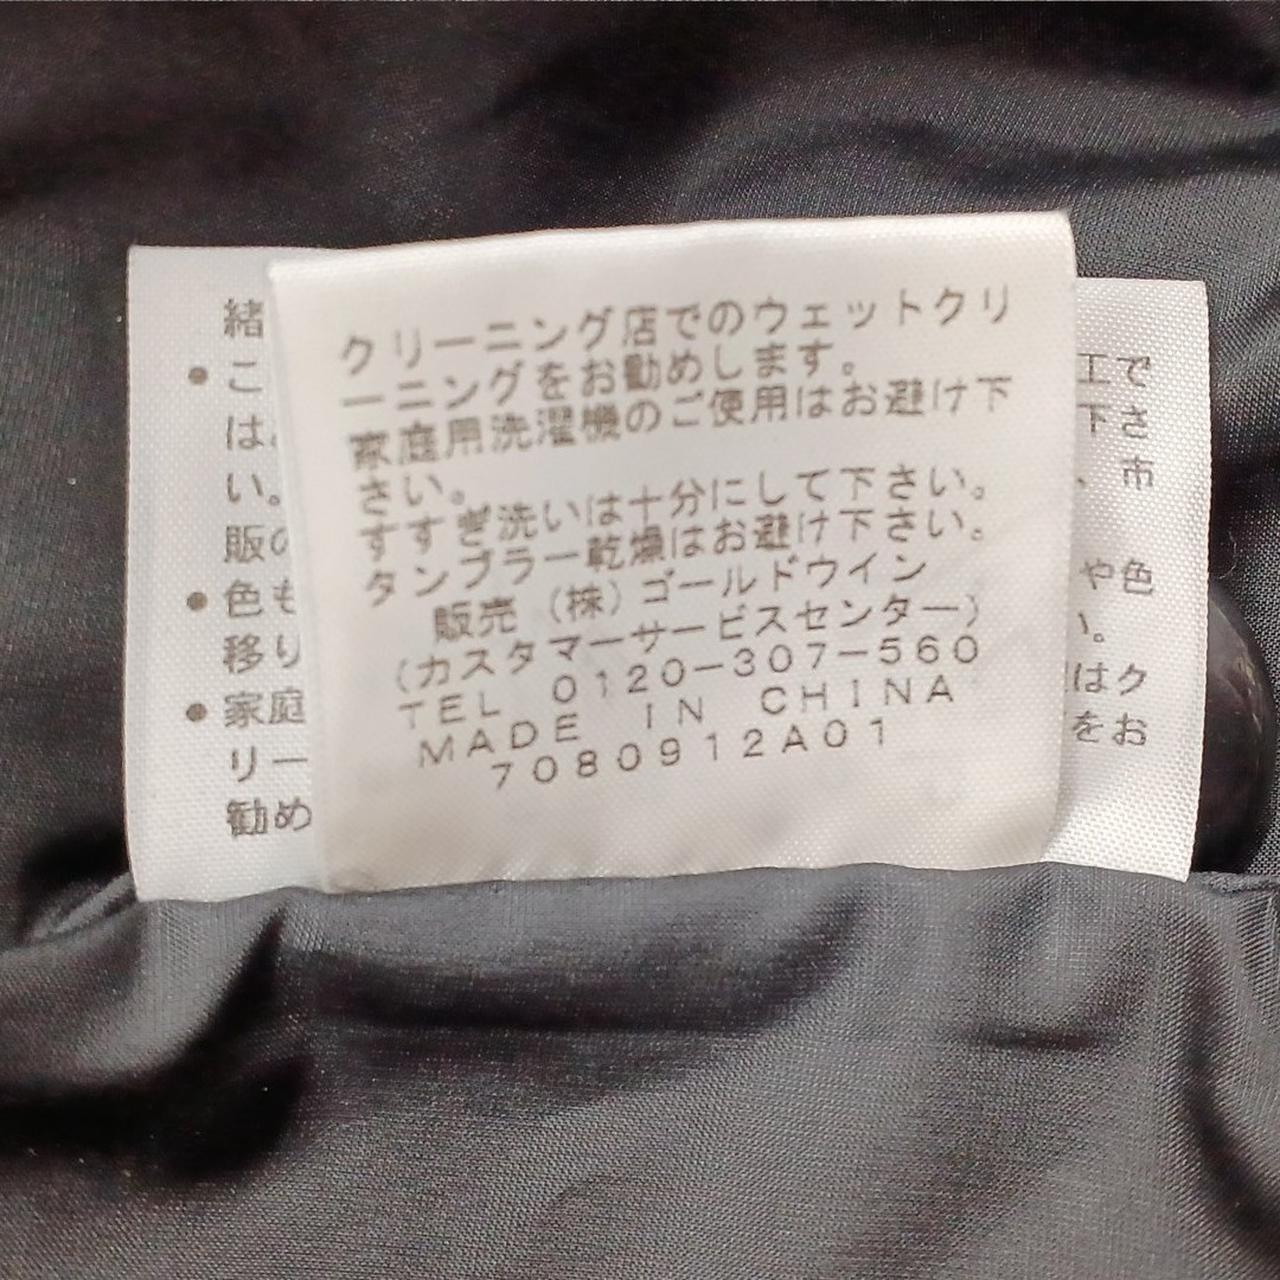 クリーニング店でのウェットクリ
ーニングをお勧めします。
家庭用洗濯機のご使用はお避け下
さい。
すすぎ洗いは十分にして下さい。
タンブラー乾燥はお避け下さい。
販売（株）ゴールドウイン
（カスタマーサービスセンター）
TEL 0120-307-560
MADE IN CHINA
7080912A01
緒
●こ
は
い。
販の
●色も
移り
●家庭
リー
勧め
工で
下さ
、市
や色
い。
はク
をお